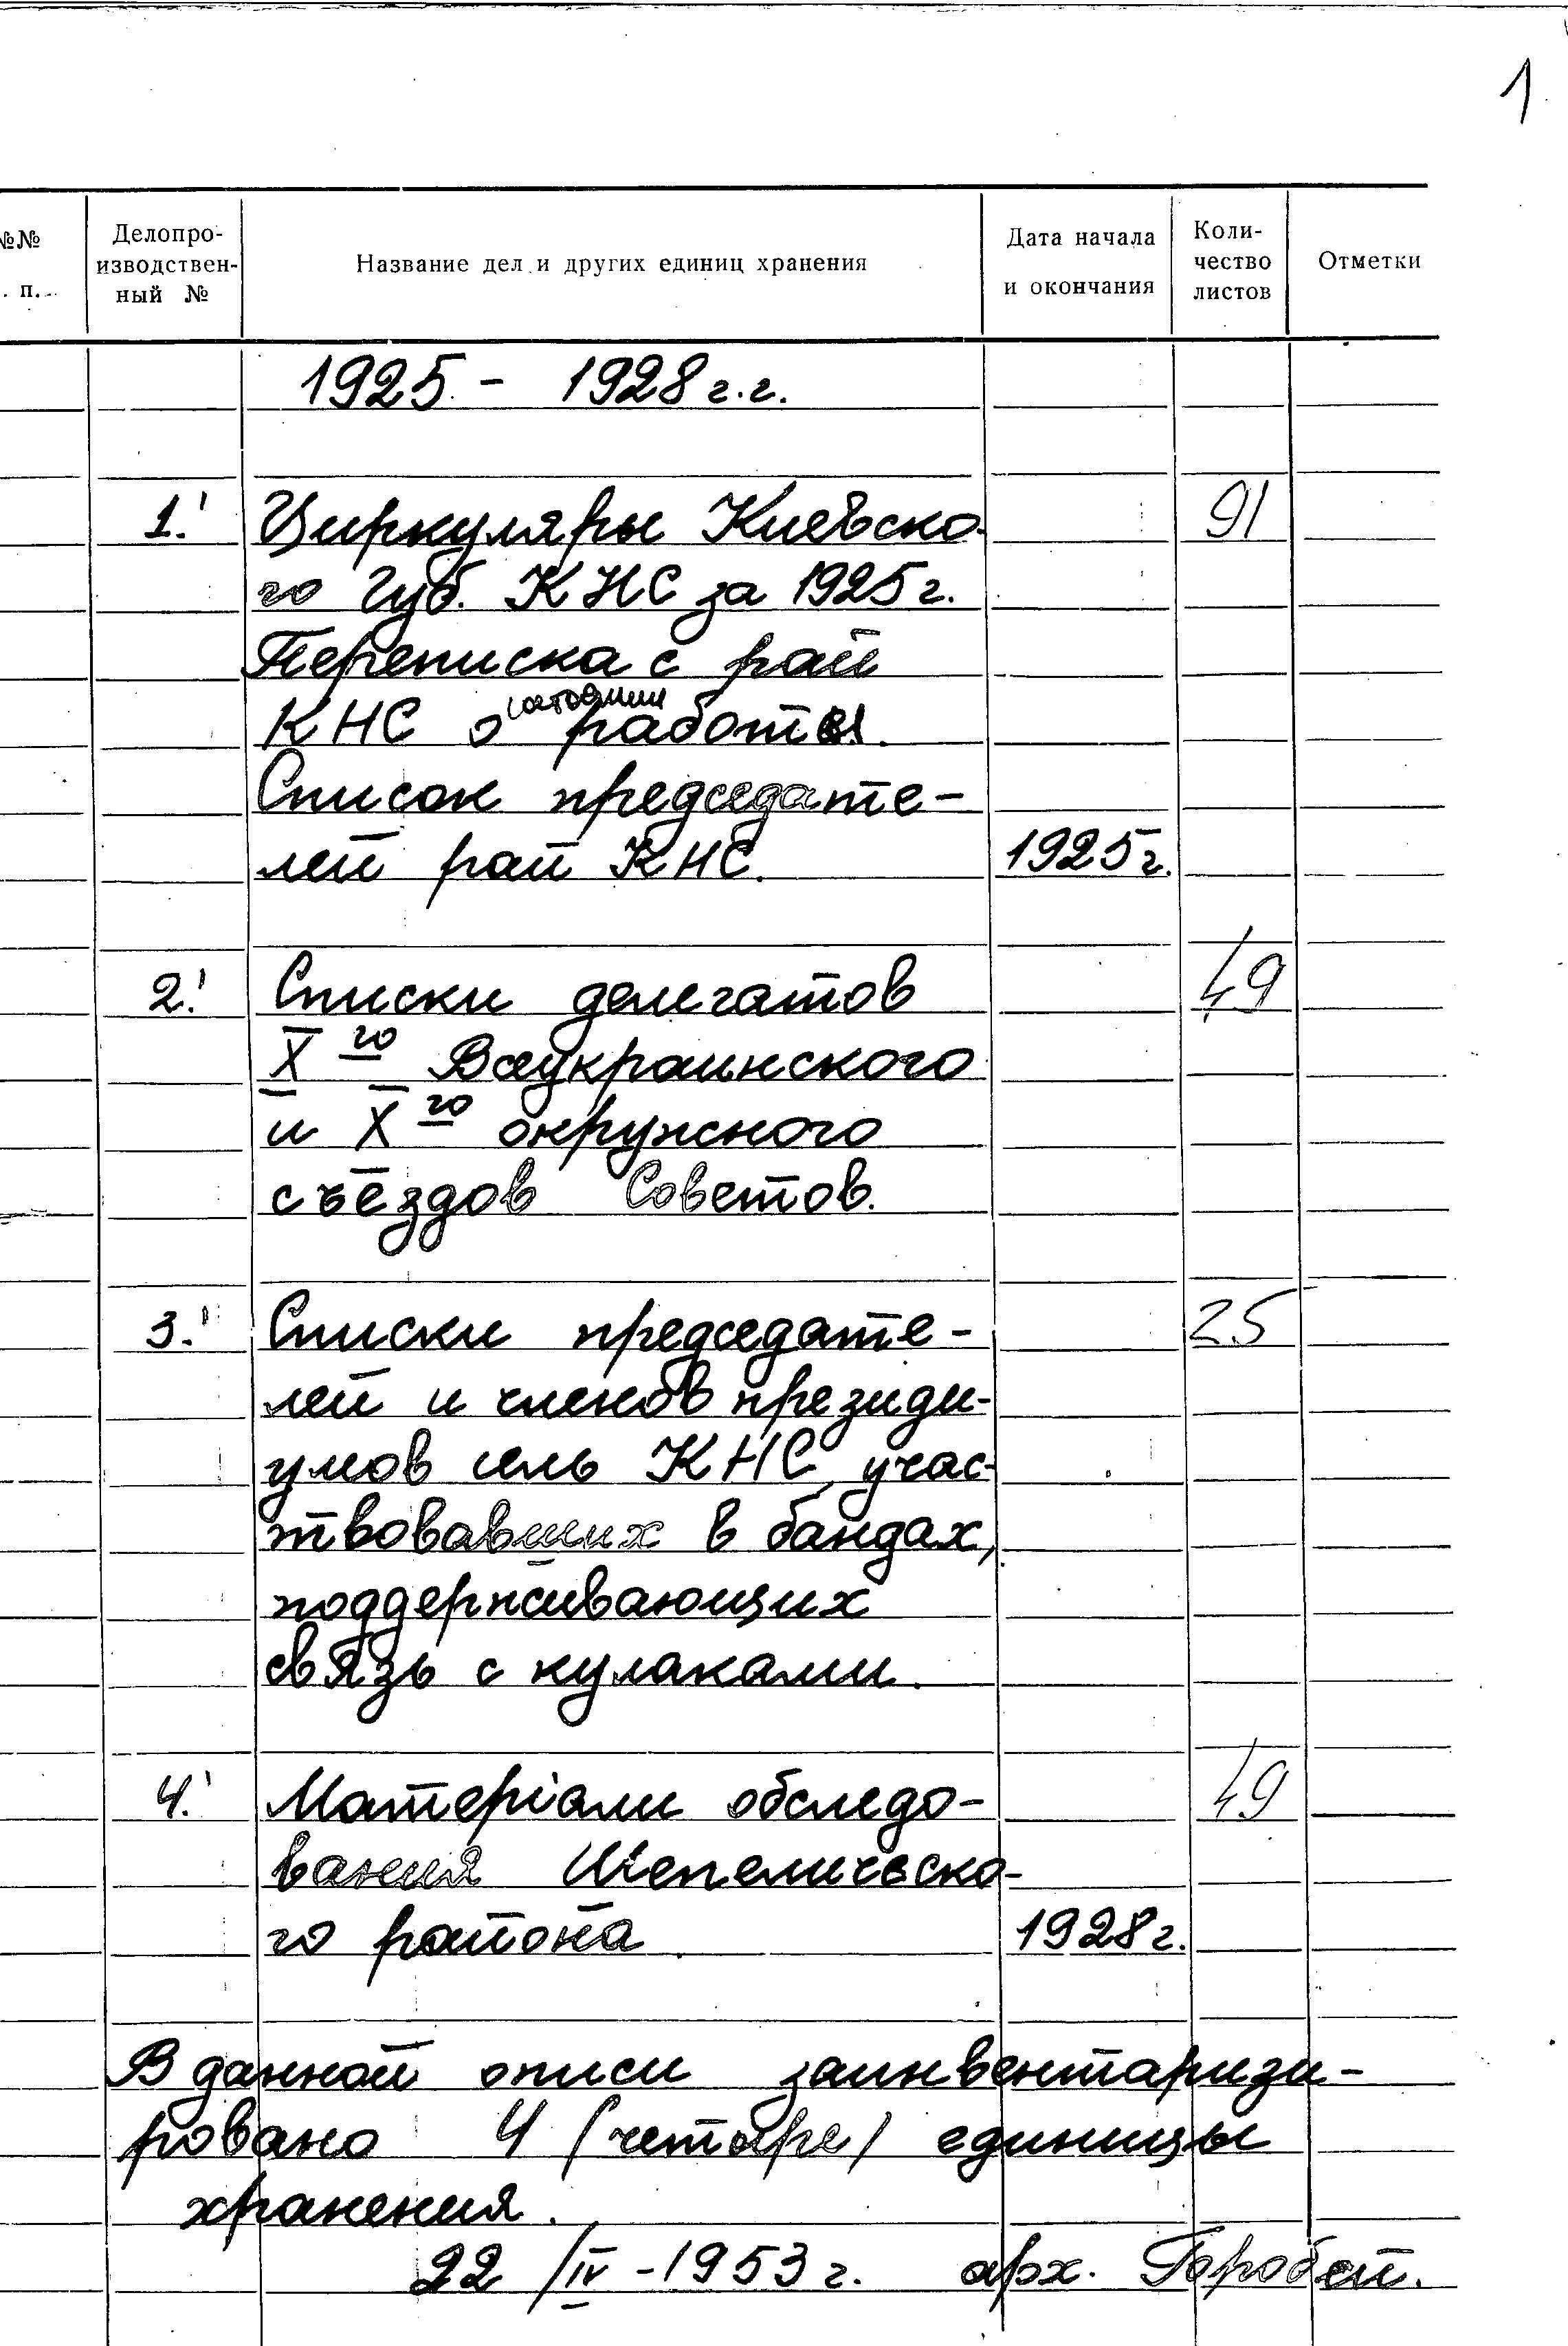 1
№№
. п.
Делопро-
изводствен-
ный №
Название дел и других единиц хранения
Дата начала
и окончания
Коли-
чество
листов
Отметки
1925 - 1928 г.г.
1. Циркуляры Киевско- 91
го Губ. КНС за 1925 г.
Переписка с рай
КНС о состоянии работы.
Список председате-
лей рай КНС. 1925 г.
2. Списки делегатов 49
X го Всеукраинского
и X го окружного
съездов Советов.
3. Списки председате- 25
лей и членов президи-
умов сель КНС, учас-
твовавших в бандах,
поддерживающих
связь с кулаками.
4. Матеріали обследо- 49
вания Шепеличско-
го района 1928 г.
В данной описи заинвентаризи-
ровано 4 (четыре) единицы
хранения.
22/IV - 1953 г. арх. Горобец.